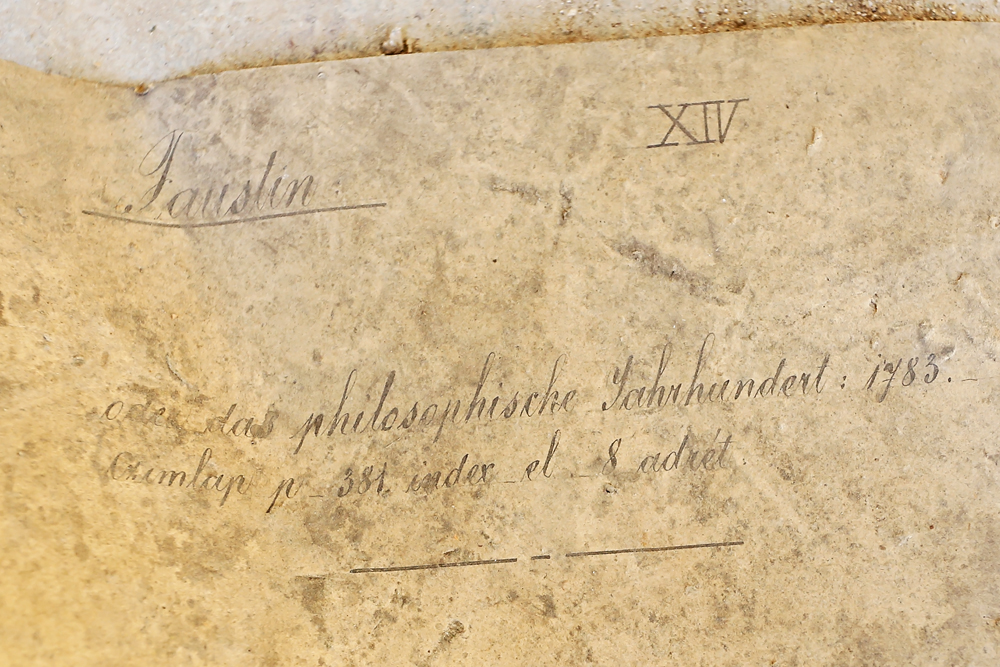 XIV
Faustin
oder das philosophische Jahrhundert : 1783. –
Czimlap p – 381 index – el – 8 adrét